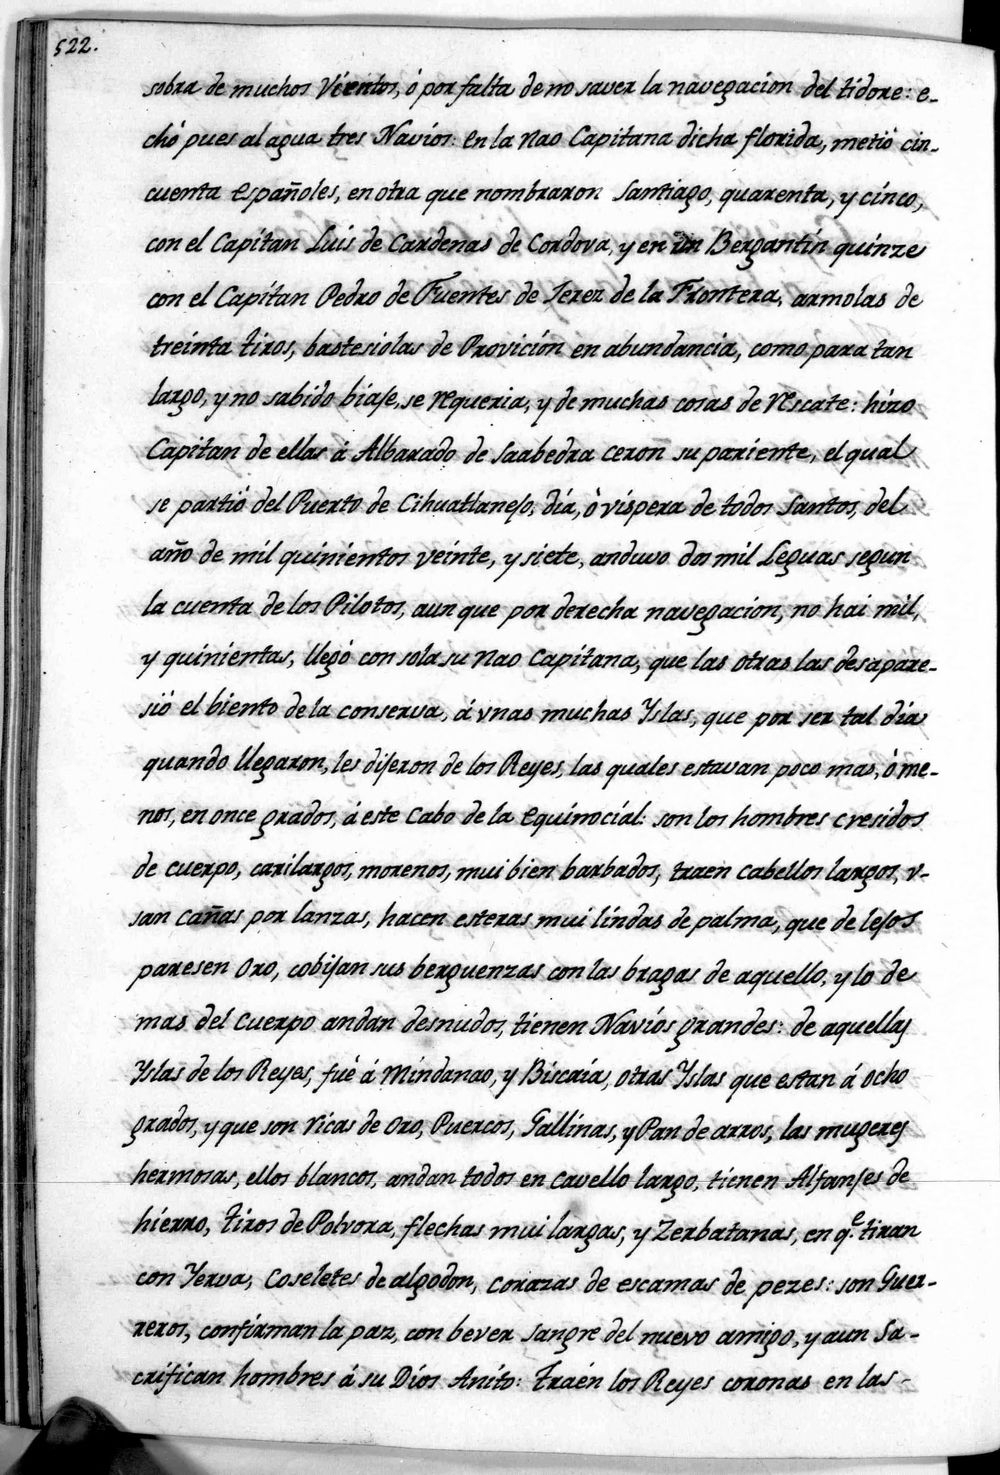 522.
sobra de muchos Vientos, ó por falta de no saver la navegacion del tidore: e-
chó pues al agua tres Navíos: en la Nao Capitana dicha florida, metió cin-
cuenta españoles, en otra que nombraron Santiago, quarenta, y cinco,
con el Capitan Luis de Cardenas de Cordova, y en un Bergantin quinze
con el Capitan Pedro de Fuentes de Jerez de la Frontera, armolas de
treinta tiros, bastesiolas de Provición en abundancia, como para tan
largo, y no sabido biaje, se requeria, y de muchas cosas de rescate: hizo
Capitan de ellas á Albarado de Saabedra ceron su pariente, el qual
se partió del Puerto de Cihuatlanejo, día, ò víspera de todos Santos, del
año de mil quinientos veinte, y siete, anduvo dos mil Leguas segun
la cuenta de los Pilotos, aun que por derecha navegacion, no hai mil,
y quinientas, llegó con sola su Nao Capitana, que las otras las desapare-
sió el biento de la conserva, á vnas muchas Yslas, que por ser tal día
quando llegaron, les dijeron de los Reyes, las quales estavan poco mas, ò me-
nos, en once grados, á este Cabo de la equinocíal: son los hombres cresidos
de cuerpo, carilargos, morenos, mui bien barbados, traen cabellos largos, v-
san cañas por lanzas, hacen esteras mui lindas de palma, que de lejos
paresen Oro, cobijan sus berguenzas con las bragas de aquello, y lo de
mas del cuerpo andan desnudos, tienen Navíos grandes: de aquellas
Yslas de los Reyes, fué á Mindanao, y Biscaía, otras Yslas que estan á ocho
grados, y que son ricas de Oro, Puercos, Gallinas, y Pan de arros, las mugeres
hermosas, ellos blancos, andan todos en cavello largo, tienen Alfanjes de
hierro, tiros de Polvora, flechas mui largas, y Zerbatanas, en q.e tiran
con Yerva, Coseletes de algodon, corazas de escamas de pezes: son Guer-
reros, confirman la paz, con bever sangre del nuevo amigo, y aun Sa-
crifican hombres á su Dios Anito: Traén los Reyes coronas en las-